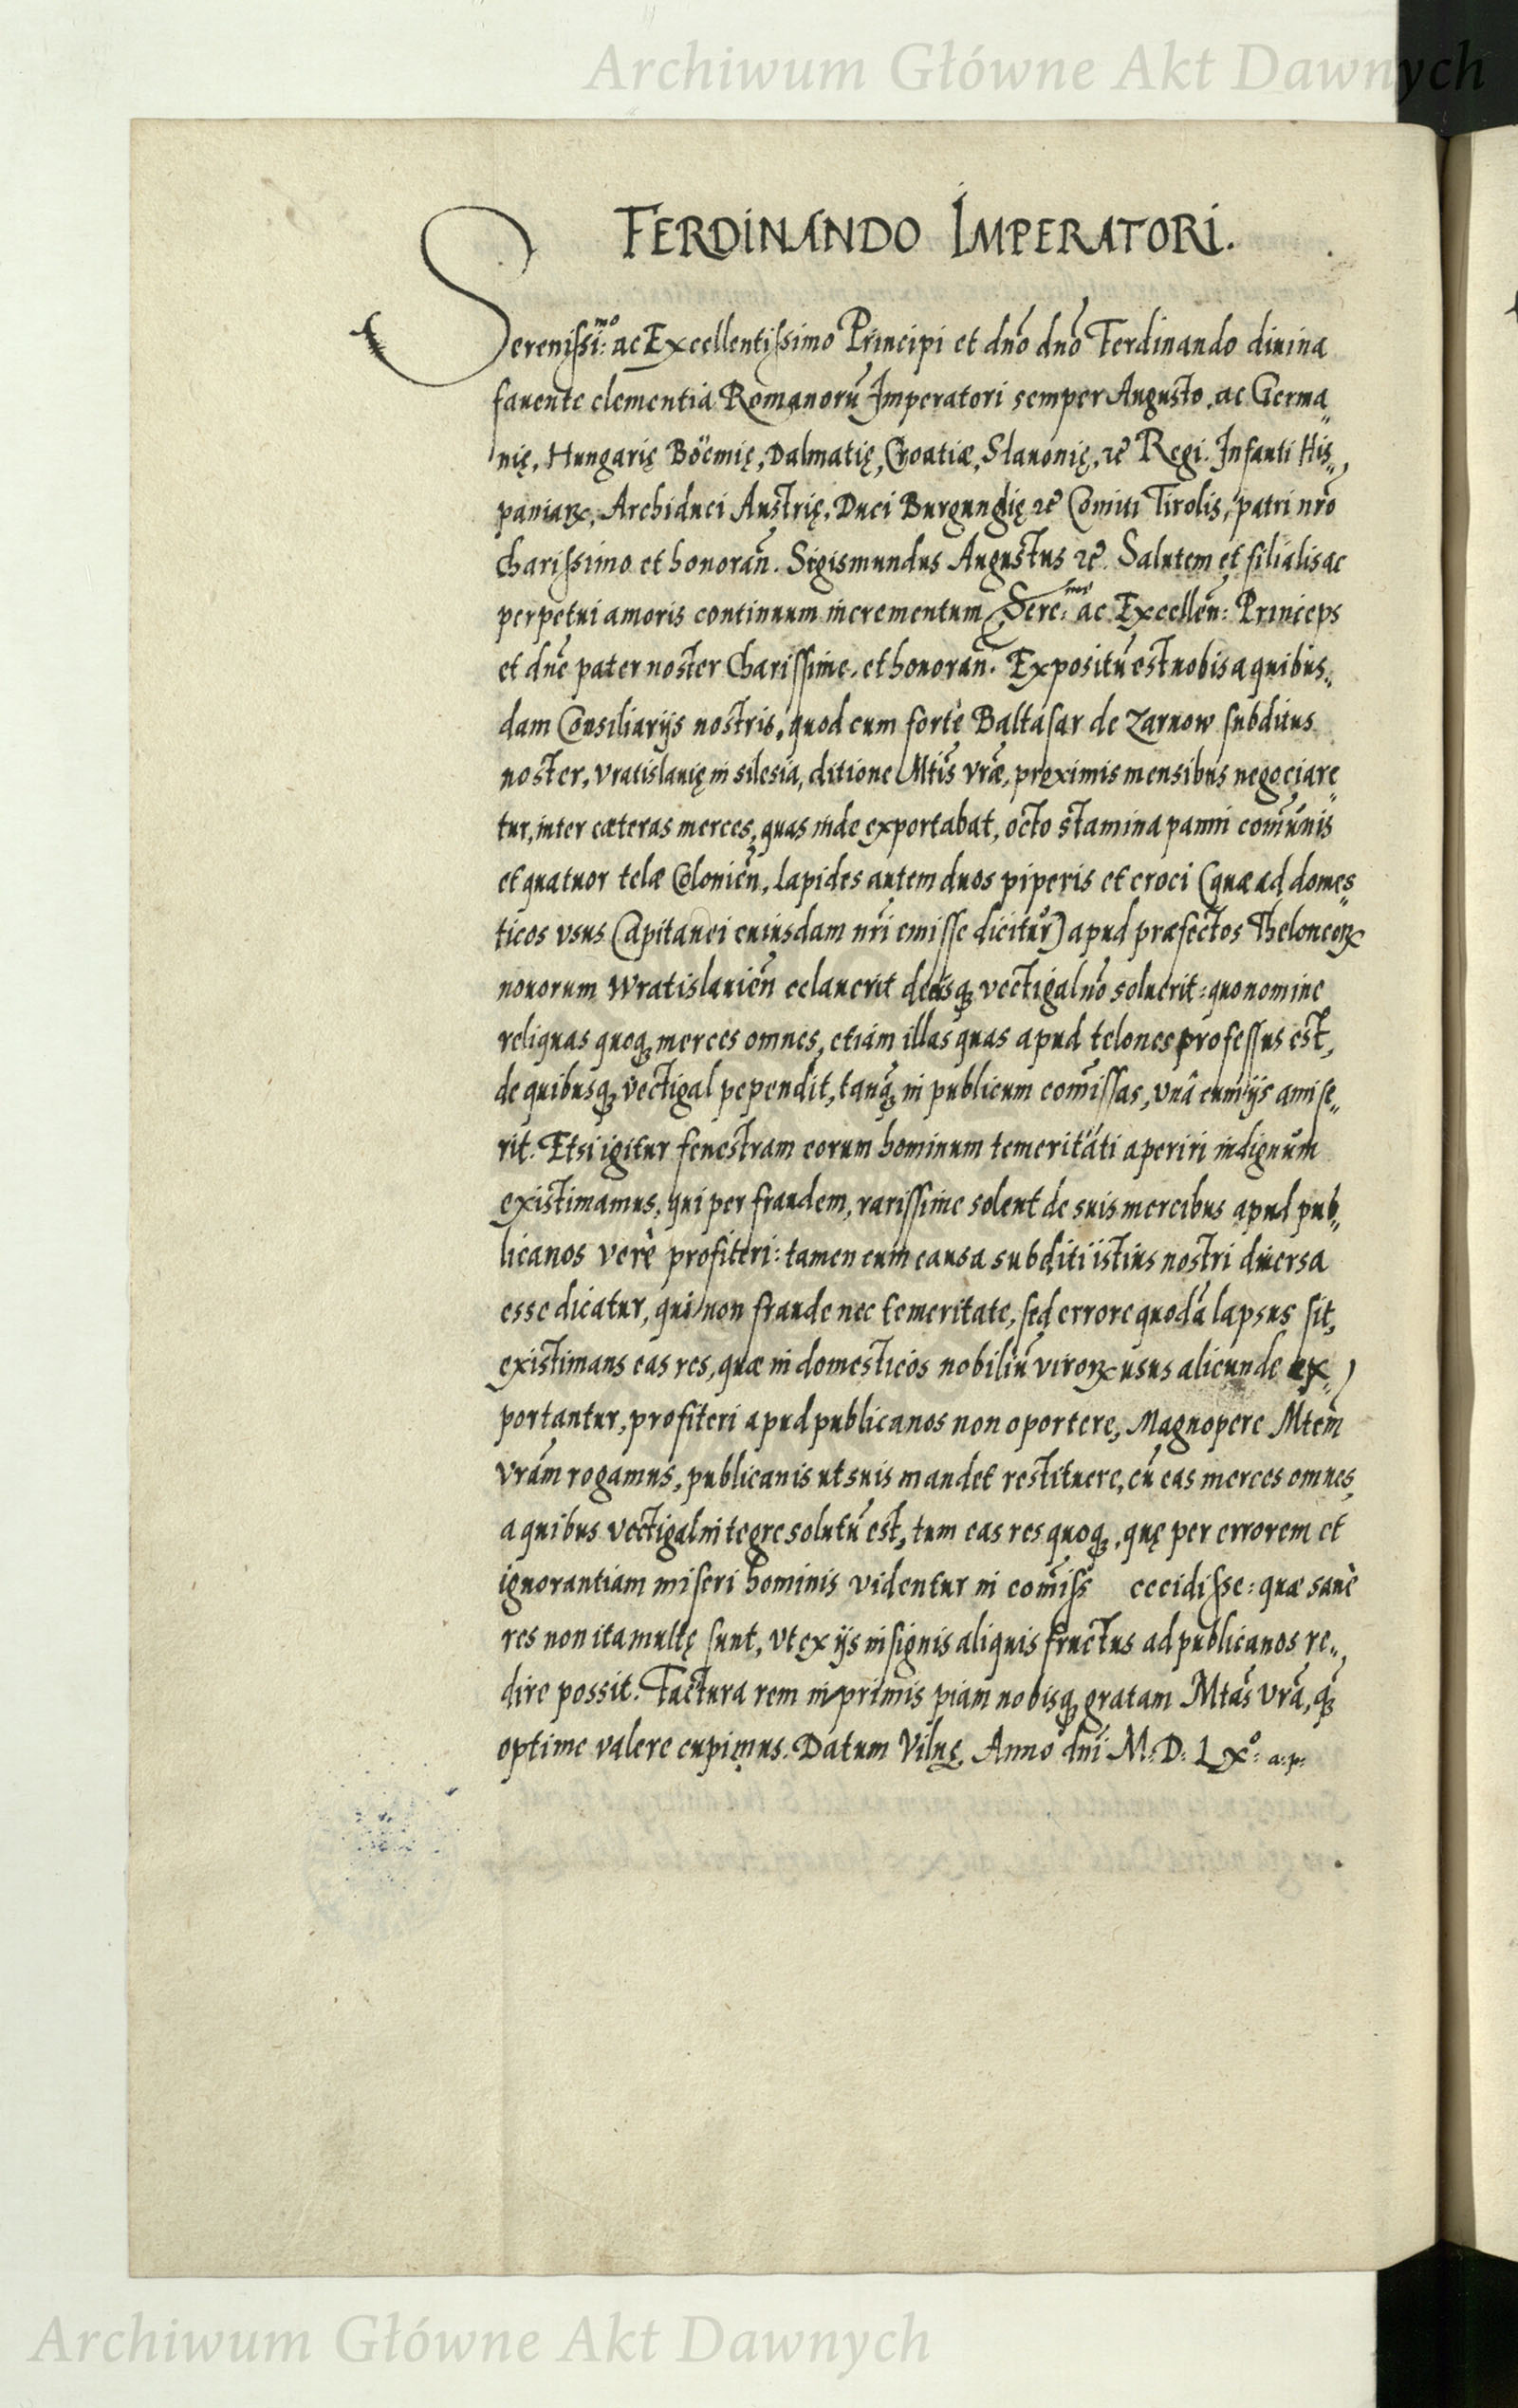 Archiwum Główne Akt Dawnych
FERDINANDO IMPERATORI.
Sereniſsi:mo ac Excellentiſsimo Principi et dño dño Ferdinando diuina
fauente clementia Romanorũ Imperatori semper Augusto, ac Germa„
nię, Hungarię Böemię, Dalmatię, Croatiæ, Slauonię, ꝛc̃ Regi. Infanti His„
paniaꝝ, Archiduci Austrię, Duci Burgundię ꝛc̃ Comiti Tirolis, patri nr̃o
chariſsimo et honorañ. Sigismundus Augustus ꝛc̃. Salutem et filialis ac
perpetui amoris continuum incrementum. Sere:me ac Excelleñ: Princeps
et dñe pater noster chariſſime, et honorañ. Expositũ est nobis a quibus„
dam Consiliarijs nostris, quod cum fortè Baltasar de Zarnow subditus
noster, Vratislauię in silesia, ditione Mtis̃ Vræ̃, proximis mensibus negociare„
tur, inter cæteras merces, quas inde exportabat, octo stamina panni com̃unis
et quatuor telæ Colonieñ, lapides autem duos piperis et croci (quæ ad domes„
ticos vsus Capitanei cuiusdam nr̃i emiſſe dicitur) apud præfectos Theloneoꝝ
nouorum Wratislauieñ celauerit deisqꝫ vectigal nõ soluerit: quo nomine
reliquas quoqꝫ merces omnes, etiam illas quas apud telones profeſſus est,
de quibusqꝫ vectigal pependit, tanqꝫ in publicum com̃iſſas, vnâ cum ijs amiſe„
rit. Etsi igitur fenestram eorum hominum temeritati aperiri indignum
existimamus, qui per fraudem, rariſſime solent de suis mercibus apud pub„
licanos verè profiteri: tamen cum causa subditi istius nostri diuersa
esse dicatur, qui non fraude nec temeritate, sed errore quodã lapsus sit,
existimans eas res, quæ in domesticos nobiliũ viroꝝ usus alicunde ex„
portantur, profiteri apud publicanos non oportere, Magnopere Mtem̃
Vrãm rogamus, publicanis ut suis mandet restituere, cũ eas merces omnes,
a quibus vectigal integre solutũ est, tum eas res quoqꝫ, quę per errorem et
ignorantiam miseri hominis videntur in com̃iſs cecidiſse: quæ sanè
res non ita multę sunt, vt ex ijs insignis aliquis fructus ad publicanos re„
dire possit. Factura rem in primis piam nobisqꝫ gratam Mtas̃ Vrã, qꝫ̃
optime valere cupimus. Datum Vilnę, Anno dñi M. D. LXº. a:p:
Archiwum Główne Akt Dawnych